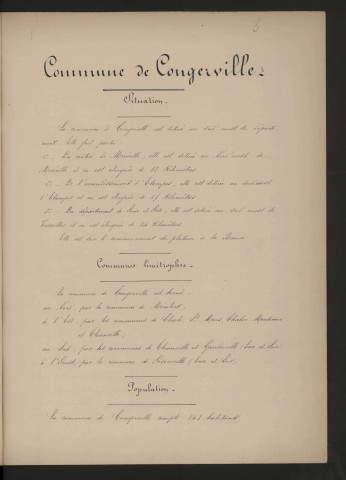 Commune de Congerville
Situation.
La commune de Congerville est située au Sud ouest du départe
ment. Elle fait partie :
1° Du canton de Méréville, elle est située au Nord ouest de
Méréville et en est éloignée de Kilomètres
2° De l'arrondissement d'Etampes, elle est située au Sud ouest
d'Etampes et en est éloignée de Kilomètres
3° Du département de Seine et Oise, elle est située au Sud ouest de
Versailles et en est éloignée de Kilomètres.
Elle est sur le commencement du plateau de la Beauce.
Communes limitrophes.
La commune de Congerville est bornée :
au Nord, par la commune de
à l'Est, par les communes de Chalo St Mars, Chalou Moulineux
et Thionville,
au Sud, par les communes de Thionville et Gaudreville (Eure et Loir)
à l'Ouest, par la commune de (Eure et Loir).
Population.
La commune de Congerville compte habitants.